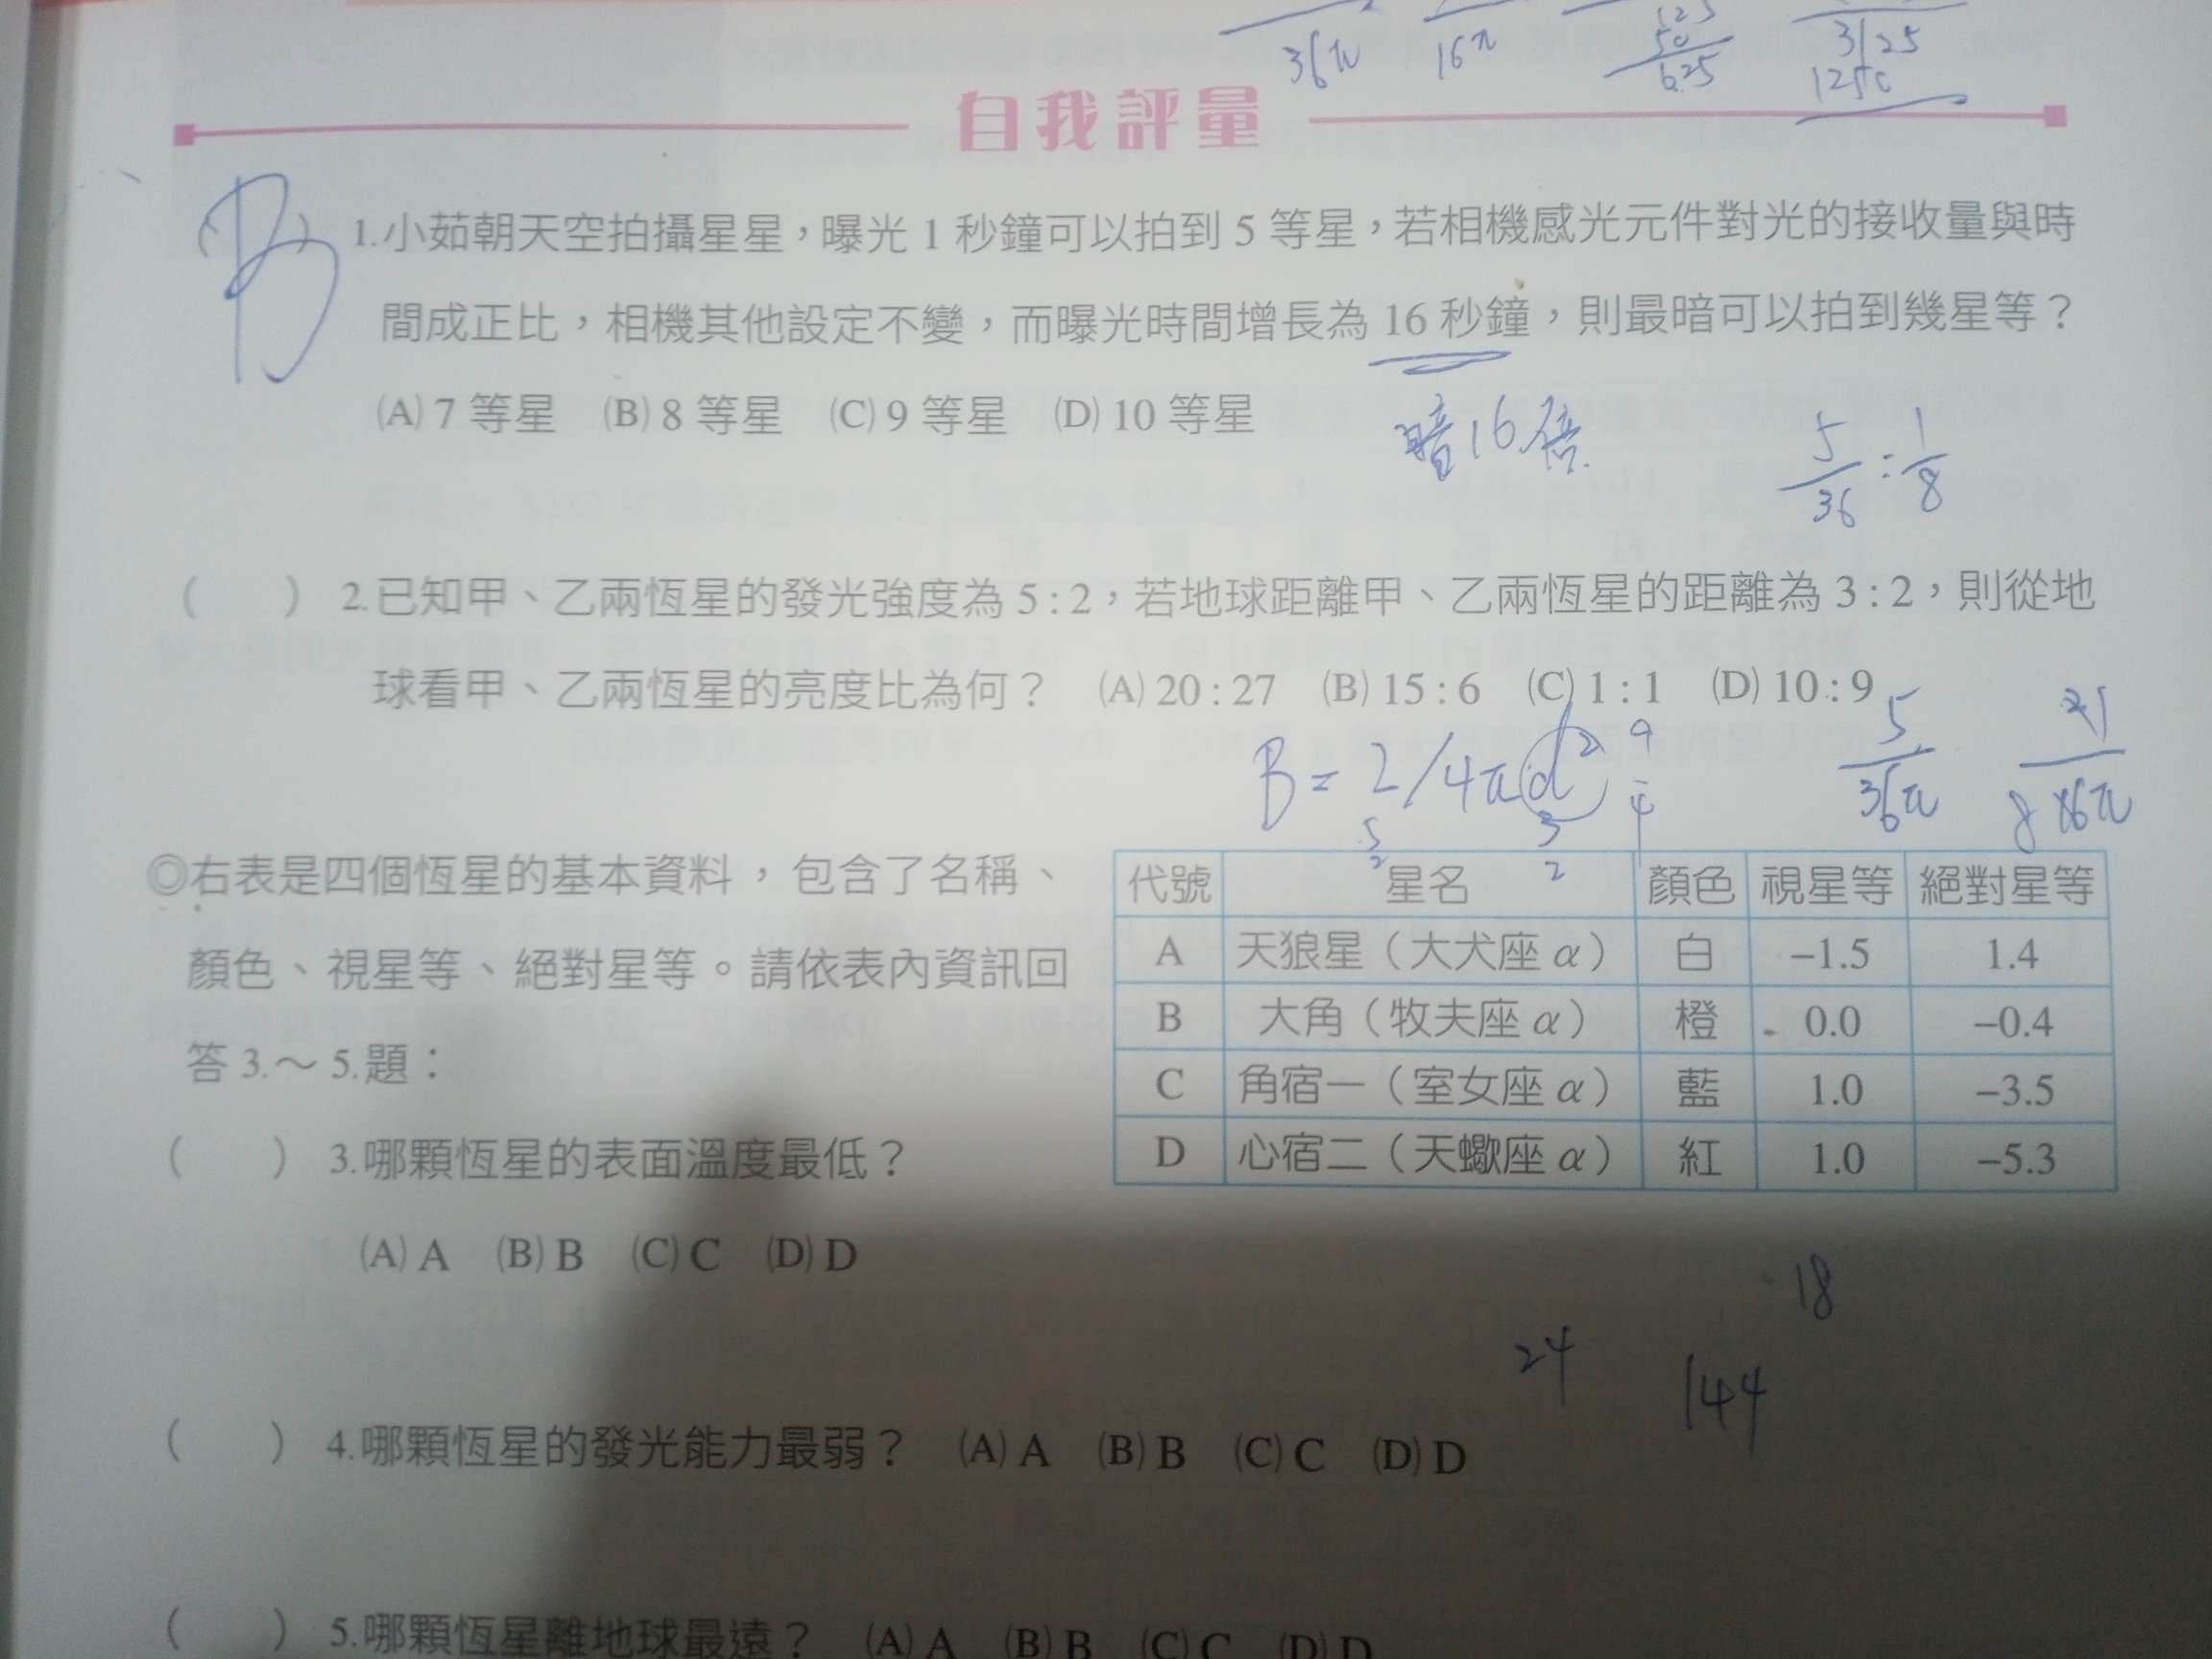 36π 16π 125 50 625 3125 1250
自我評量
(B) 1.小茹朝天空拍攝星星，曝光 1 秒鐘可以拍到 5 等星，若相機感光元件對光的接收量與時
間成正比，相機其他設定不變，而曝光時間增長為 16 秒鐘，則最暗可以拍到幾星等？
(A) 7 等星 (B) 8 等星 (C) 9 等星 (D) 10 等星
暗16倍 5/36 : 1/8
（ ） 2.已知甲、乙兩恆星的發光強度為 5 : 2，若地球距離甲、乙兩恆星的距離為 3 : 2，則從地
球看甲、乙兩恆星的亮度比為何？ (A) 20 : 27 (B) 15 : 6 (C) 1 : 1 (D) 10 : 9
B = 2/4πd² 9 : 4
5/36π
5 2 3 2
◎右表是四個恆星的基本資料，包含了名稱、
顏色、視星等、絕對星等。請依表內資訊回
答 3.～ 5.題：
代號 星名 顏色 視星等 絕對星等
A 天狼星（大犬座 α） 白 −1.5 1.4
B 大角（牧夫座 α） 橙 0.0 −0.4
C 角宿一（室女座 α） 藍 1.0 −3.5
D 心宿二（天蠍座 α） 紅 1.0 −5.3
（ ） 3.哪顆恆星的表面溫度最低？
(A) A (B) B (C) C (D) D
18
24 144
（ ） 4.哪顆恆星的發光能力最弱？ (A) A (B) B (C) C (D) D
（ ） 5.哪顆恆星離地球最遠？ (A) A (B) B (C) C (D) D